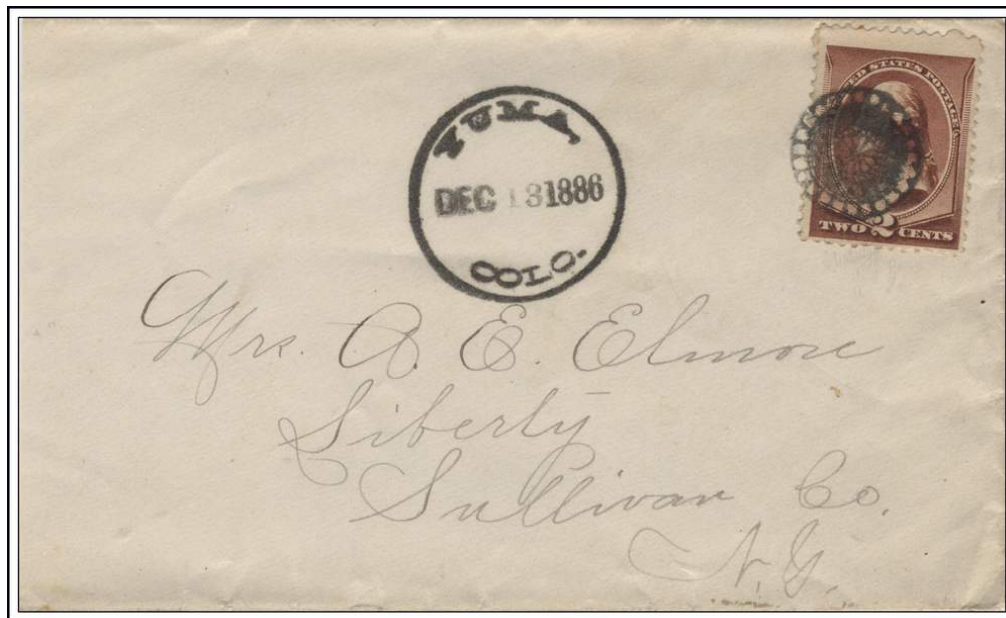 YUMA,
DEC 13 1886
COLO.
UNITED STATES POSTAGE
TWO 2 CENTS
Mrs. A. E. Elmore
Liberty
Sullivan Co.
N.Y.